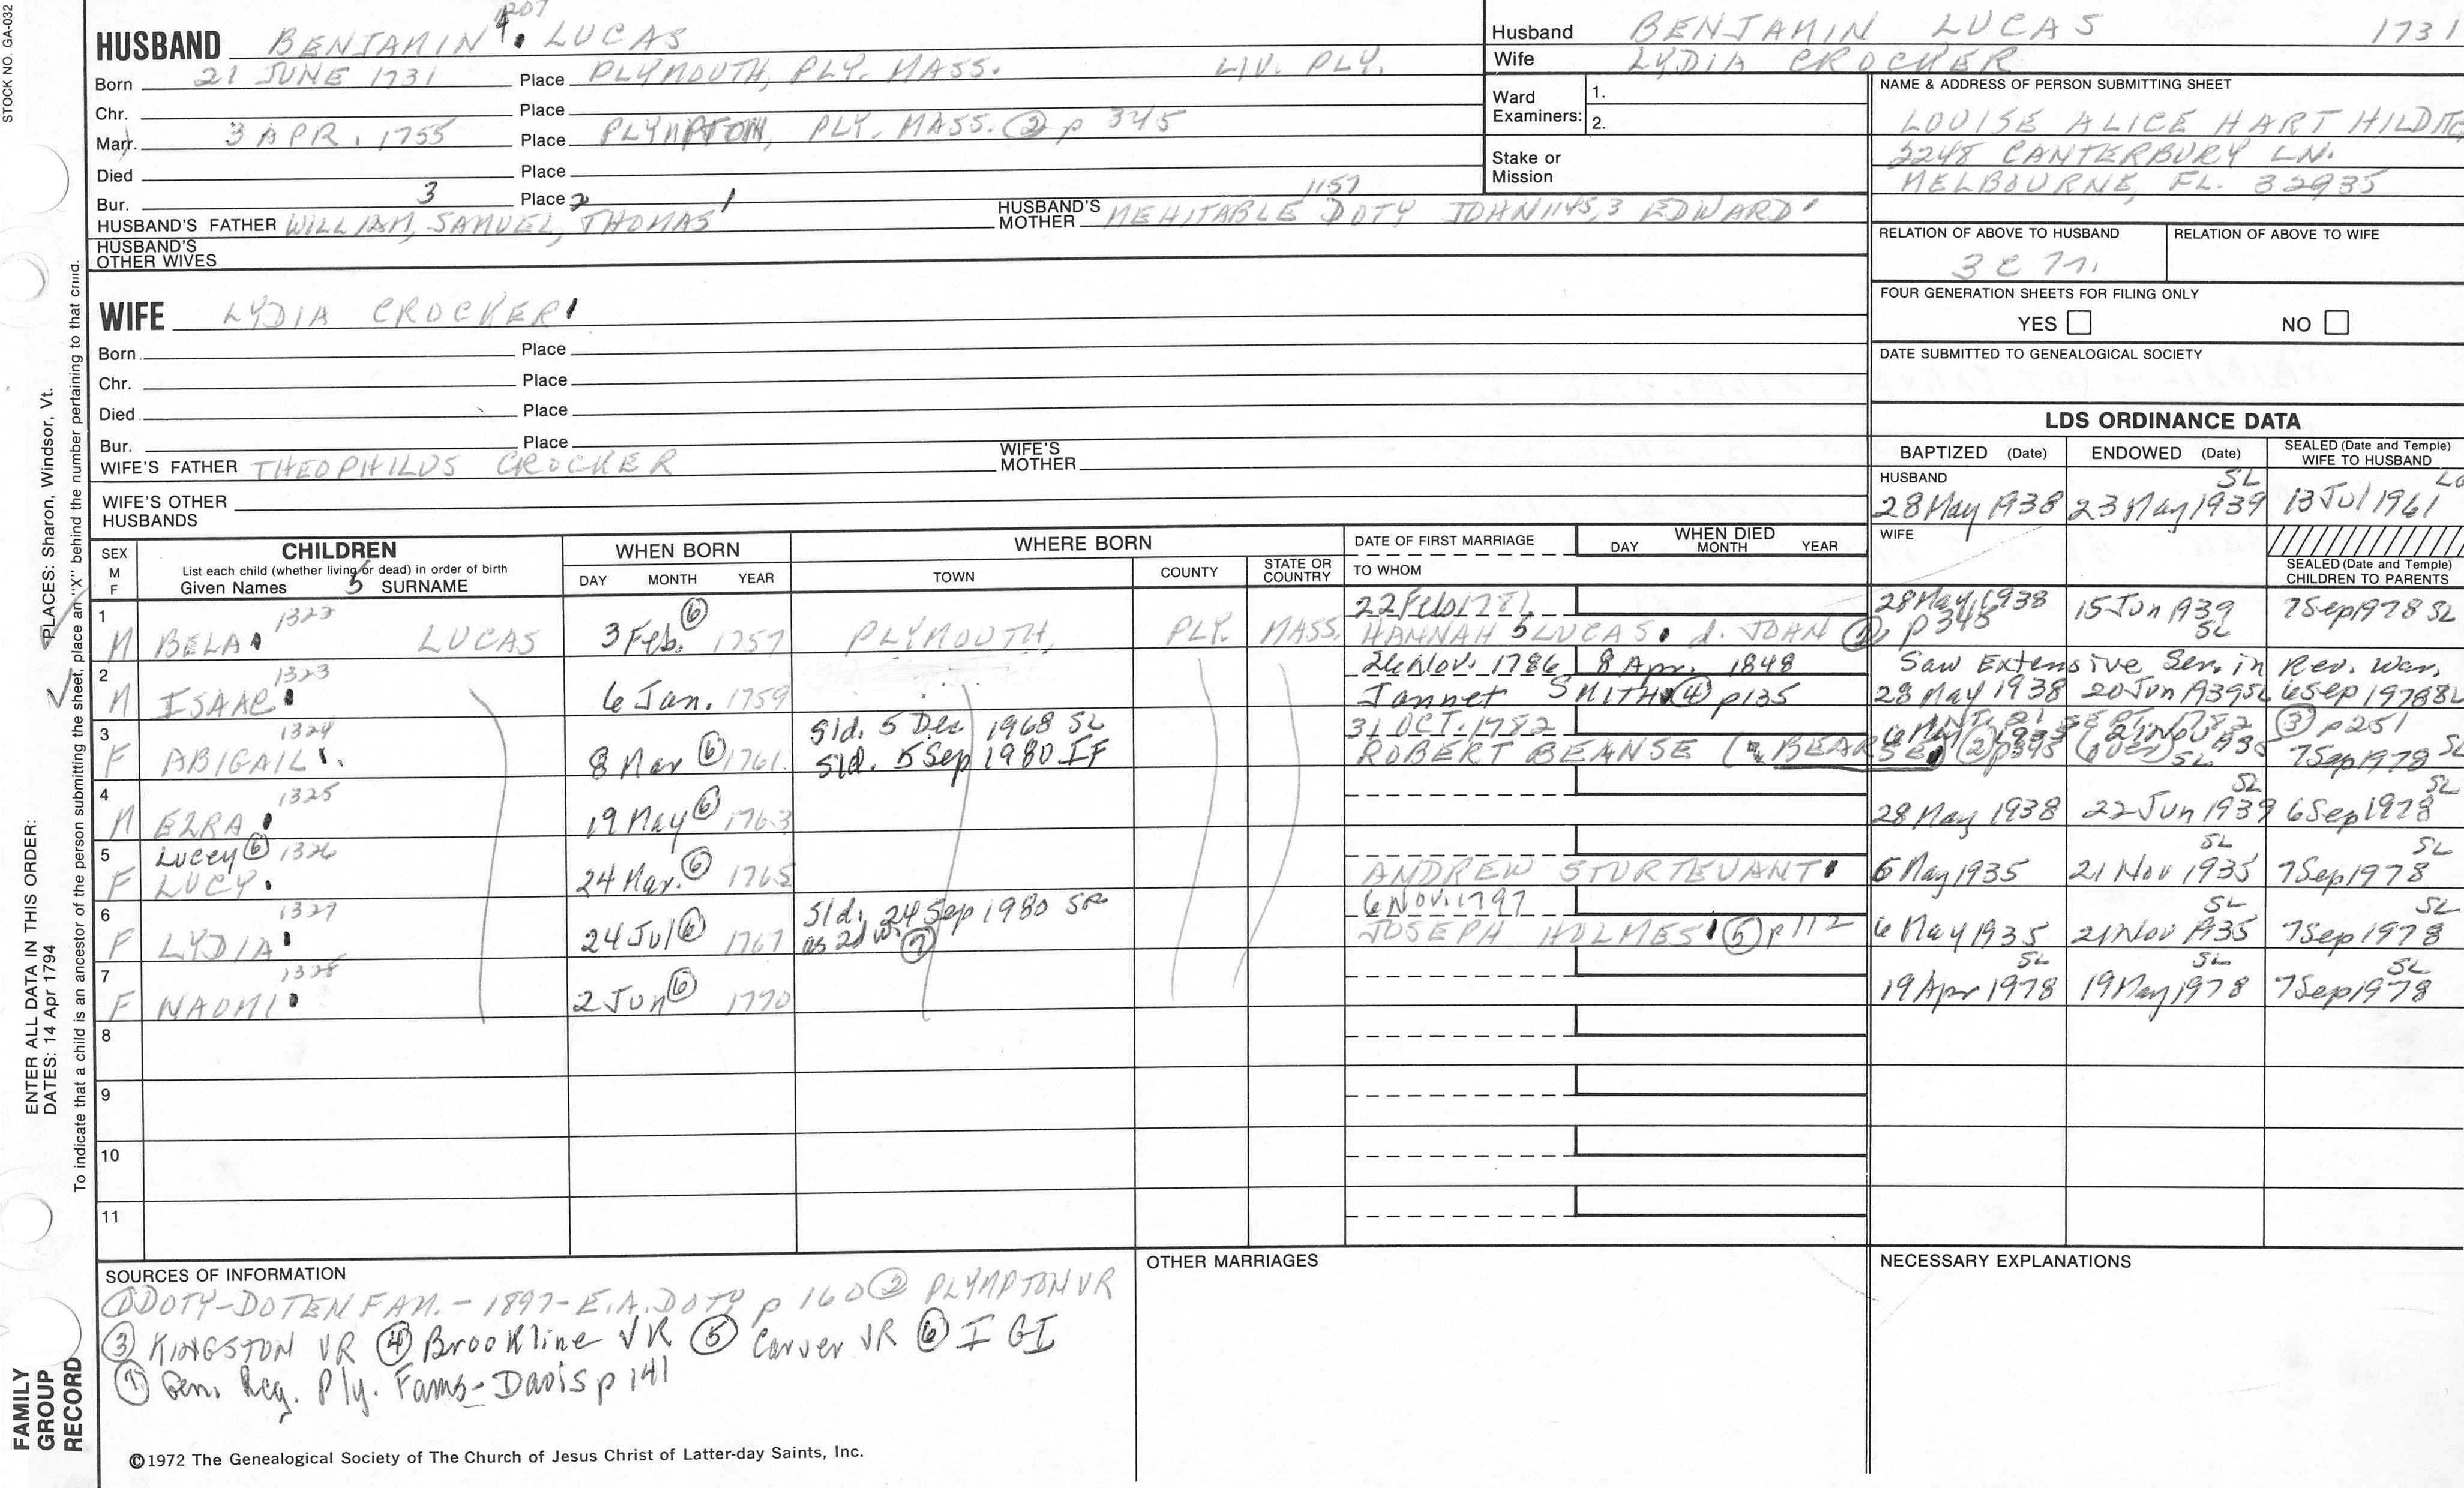 STOCK NO. GA-032
1207
HUSBAND BENJAMIN 4 LUCAS
Born 21 JUNE 1731 Place PLYMOUTH, PLY. MASS. LIV. PLY.
Chr. Place
Marr. 3 APR. 1755 Place PLYMPTON, PLY. MASS. ② p 345
Died Place
Bur. Place
3 2 1 1157
HUSBAND'S FATHER WILLIAM, SAMUEL, THOMAS HUSBAND'S MOTHER MEHITABLE DOTY JOHN 1145, 3 EDWARD
HUSBAND'S OTHER WIVES
WIFE LYDIA CROCKER
Born Place
Chr. Place
Died Place
Bur. Place
WIFE'S FATHER THEOPHILUS CROCKER WIFE'S MOTHER
WIFE'S OTHER HUSBANDS
Husband BENJAMIN LUCAS 1731
Wife LYDIA CROCKER
Ward Examiners: 1.
2.
Stake or Mission
NAME & ADDRESS OF PERSON SUBMITTING SHEET
LOUISE ALICE HART
2248 CANTERBURY LN.
MELBOURNE, FL. 32935
RELATION OF ABOVE TO HUSBAND RELATION OF ABOVE TO WIFE
3 C
FOUR GENERATION SHEETS FOR FILING ONLY
YES NO
DATE SUBMITTED TO GENEALOGICAL SOCIETY
LDS ORDINANCE DATA
BAPTIZED (Date) ENDOWED (Date) SEALED (Date and Temple) WIFE TO HUSBAND
HUSBAND SL LG
28 May 1938 23 May 1939 13 Jul 1961
WIFE
SEALED (Date and Temple) CHILDREN TO PARENTS
SEX M F CHILDREN WHEN BORN WHERE BORN DATE OF FIRST MARRIAGE WHEN DIED
List each child (whether living or dead) in order of birth
Given Names 5 SURNAME DAY MONTH YEAR TOWN COUNTY STATE OR COUNTRY TO WHOM DAY MONTH YEAR
1 1322 ⑥ 22 Feb 1781 28 May 1938 15 Jun 1939 SL 7 Sep 1978 SL
M BELA LUCAS 3 Feb. 1757 PLYMOUTH, PLY. MASS. HANNAH 5 LUCAS, d. JOAN ② p 345
2 1323 26 Nov. 1786 8 Apr. 1848 Saw Extensive Ser. in Rev. War.
M ISAAC 6 Jan. 1759 Jannet SMITH ④ p135 28 May 1938 20 Jun 1939 SL 6 Sep 1978 SL
3 1324 Sld. 5 Dec 1968 SL 31 OCT. 1782 INT. 21 SEPT. 1782 ③ p251
F ABIGAIL 8 Mar ⑥ 1761 Sld. 5 Sep 1980 IF ROBERT BEANSE (BEARSE) ② p345 (OVER) SL 7 Sep 1978 SL
4 1325 SL SL
M EZRA 19 May ⑥ 1763 28 May 1938 22 Jun 1939 6 Sep 1978
5 Lucey ⑥ 1326 SL SL
F LUCY 24 Mar. ⑥ 1765 ANDREW STURTEVANT 6 May 1935 21 Nov 1935 7 Sep 1978
6 1327 Sld. 24 Sep 1980 6 NOV. 1797 SL SL
F LYDIA 24 Jul ⑥ 1767 as 2d w. ⑦ JOSEPH HOLMES ⑤ p 112 6 May 1935 21 Nov 1935 7 Sep 1978
7 1328 SL SL SL
F NAOMI 2 Jun ⑥ 1770 19 Apr 1978 19 May 1978 7 Sep 1978
8
9
10
11
SOURCES OF INFORMATION OTHER MARRIAGES NECESSARY EXPLANATIONS
① DOTY-DOTEN FAM. - 1897 - E.A. DOTY p 160 ② PLYMPTON VR
③ KINGSTON VR ④ Brookline VR ⑤ Carver VR ⑥ IGI
⑦ Gen. Reg. Ply. Fams - Davis p 141
©1972 The Genealogical Society of The Church of Jesus Christ of Latter-day Saints, Inc.
FAMILY GROUP RECORD
ENTER ALL DATA IN THIS ORDER:
DATES: 14 Apr 1794 PLACES: Sharon, Windsor, Vt.
To indicate that a child is an ancestor of the person submitting the sheet, place an "X" behind the number pertaining to that child.